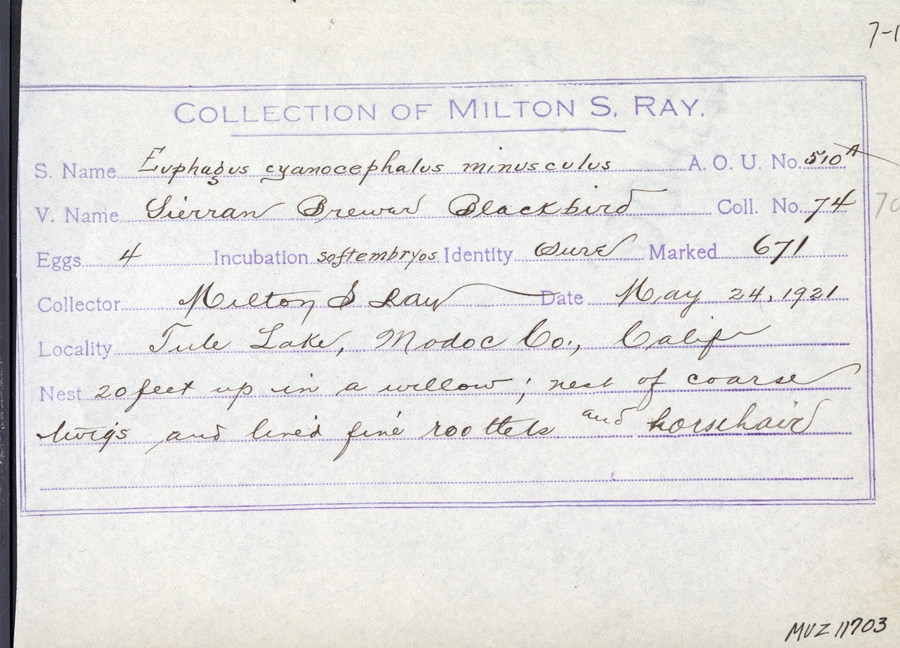 7-1
COLLECTION OF MILTON S. RAY.
S. Name Euphagus cyanocephalus minusculus A. O. U. No. 510A
V. Name Sierran Brewer Blackbird Coll. No. 74
Eggs 4 Incubation soft embryos Identity Sure Marked 671
Collector Milton S Ray Date May 24, 1921
Locality Tule Lake, Modoc Co., Calif
Nest 20 feet up in a willow; nest of coarse
twigs and lined fine rootlets and horsehair
MVZ 11703